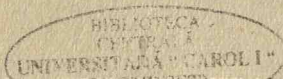 BIBLIOTECA
CENTRALĂ
UNIVERSITARĂ "CAROL I"